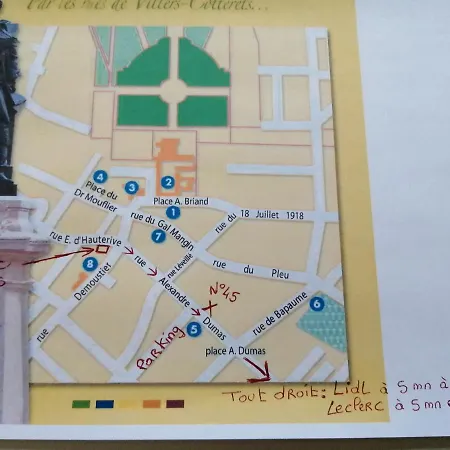 Par les rues de Villers-Cotterêts...
4
Place du
Dr Mouflier
3
2
Place A. Briand
1
rue du 18 Juillet 1918
rue du Gal Mangin
7
rue E. d'Hauterive
rue Léveillé
rue du Pleu
8
rue Demoustier
rue Alexandre Dumas
N°45
Parking
5
rue de Bapaume
6
place A. Dumas
Tout droit: Lidl à 5 mn à
Leclerc à 5 mn